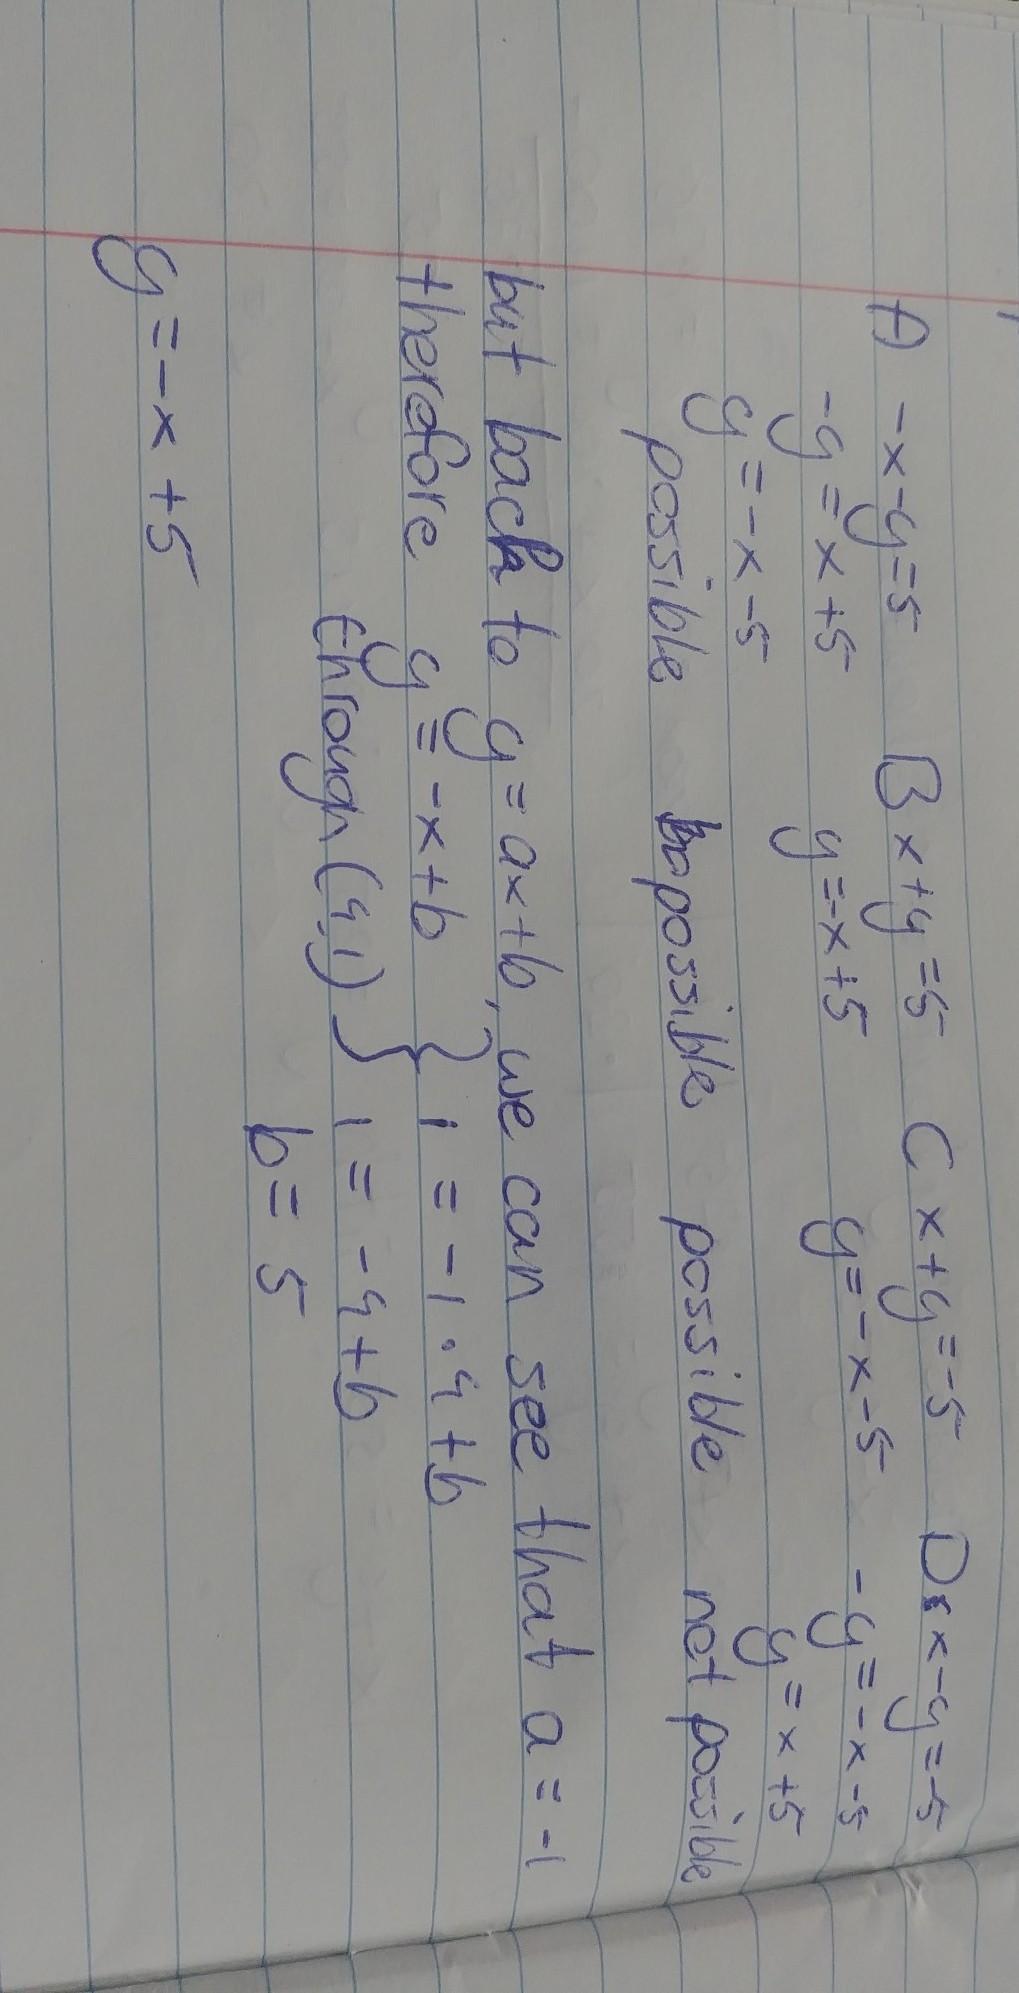 A -x-y=5 B x+y=5 C x+y=-5 D x-y=-5
-y=x+5 y=-x+5 y=-x-5 -y=-x-5
y=-x-5 y=x+5
possible possible possible not possible
but back to y=ax+b, we can see that a=-1
therefore y=-x+b } 1=-1·4+b
through (4,1) } 1=-4+b
b=5
y=-x+5